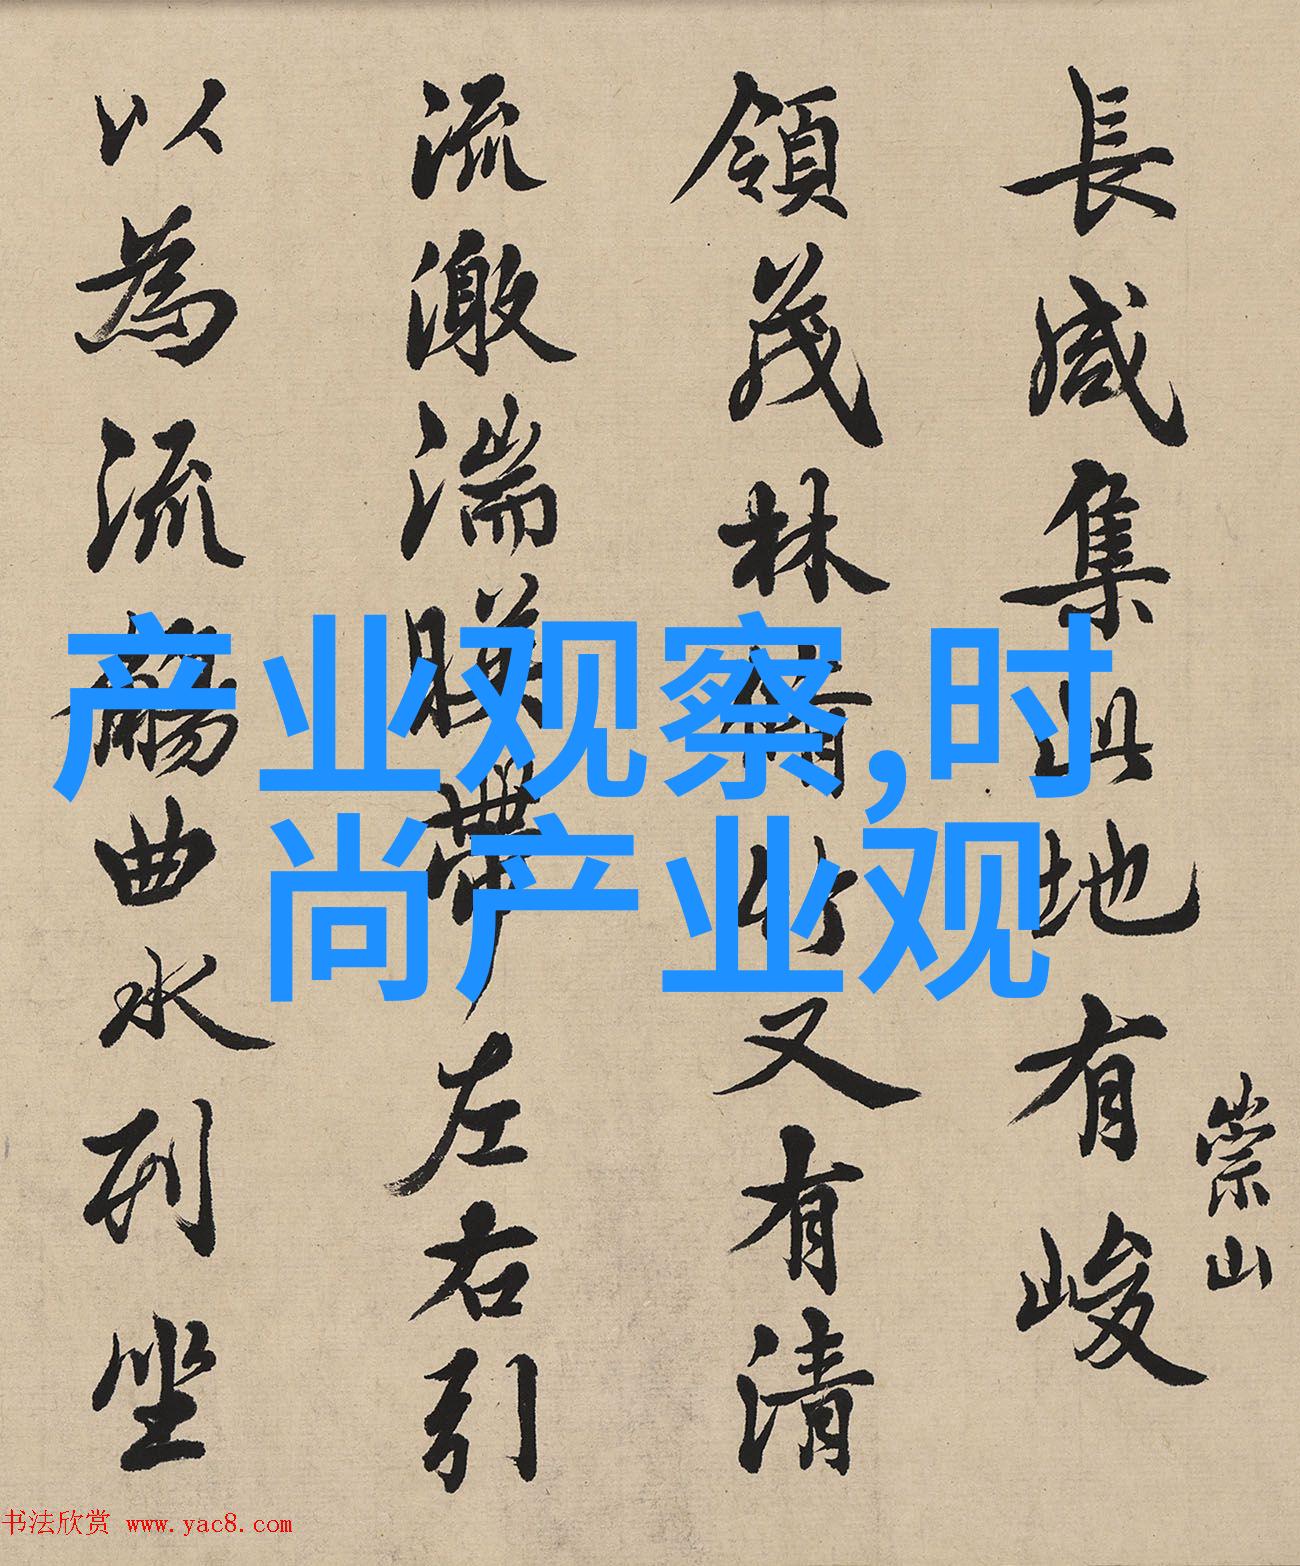 長咸集此地有峻
崇山
領茂林脩竹又有清
流激湍暎帶左右引
以為流觴曲水列坐
产业观察,时
尚产业观
书法欣赏 www.yac8.com